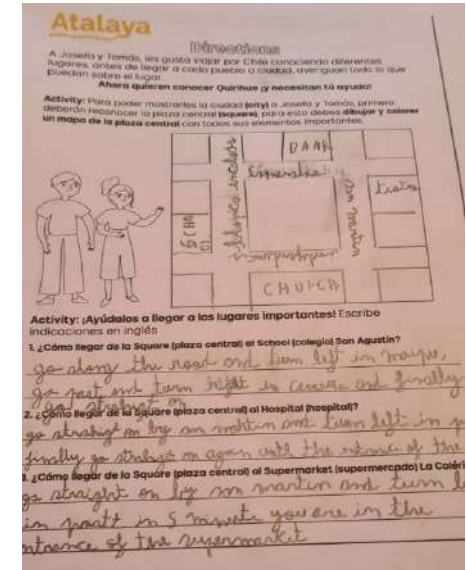 Atalaya
Directions
A Josefa y Tomás, les gusta viajar por Chile conociendo diferentes
lugares, antes de llegar a cada pueblo o ciudad, averiguan todo lo que
puedan sobre el lugar.
Ahora quieren conocer Quirihue ¡y necesitan tú ayuda!
Activity: Para poder mostrarles la ciudad (city) a Josefa y Tomás, primero
deberán reconocer la plaza central (square), para esto debes dibujar y colorear
un mapa de la plaza central con todos sus elementos importantes.
BANK
Esmeralda
san martin
CHURCH
Activity: ¡Ayúdalos a llegar a los lugares importantes! Escribe
indicaciones en inglés
1. ¿Cómo llegar de la Square (plaza central) al School (colegio) San Agustín?
go along the road and turn left in maipu,
go past and turn hight in carrera and finally
go straight on
2. ¿Cómo llegar de la Square (plaza central) al Hospital (hospital)?
go straight on by san martin and turn left in
finally go straight on again until the entrance of the
3. ¿Cómo llegar de la Square (plaza central) al Supermarket (supermercado) La
go straight on by san martin and turn
in pratt in 5 minute you are in the
entrance of the supermarket